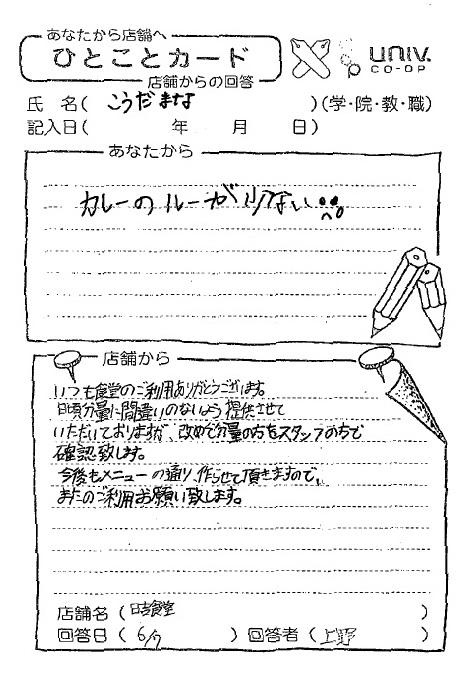 あなたから店舗へ
ひとことカード
店舗からの回答
UNIV.
CO-OP
氏 名( こうだまな )(学・院・教・職)
記入日( 年 月 日)
あなたから
カレーのルーが少ない
店舗から
いつも食堂のご利用ありがとうございます。
日頃分量に間違いのないよう提供させて
いただいておりますが、改めて分量の方をスタッフの方で
確認致します。
今後もメニューの通り、作らせて頂きますので、
またのご利用お願い致します。
店舗名( 日吉食堂 )
回答日( 6/7 )回答者( 上野 )